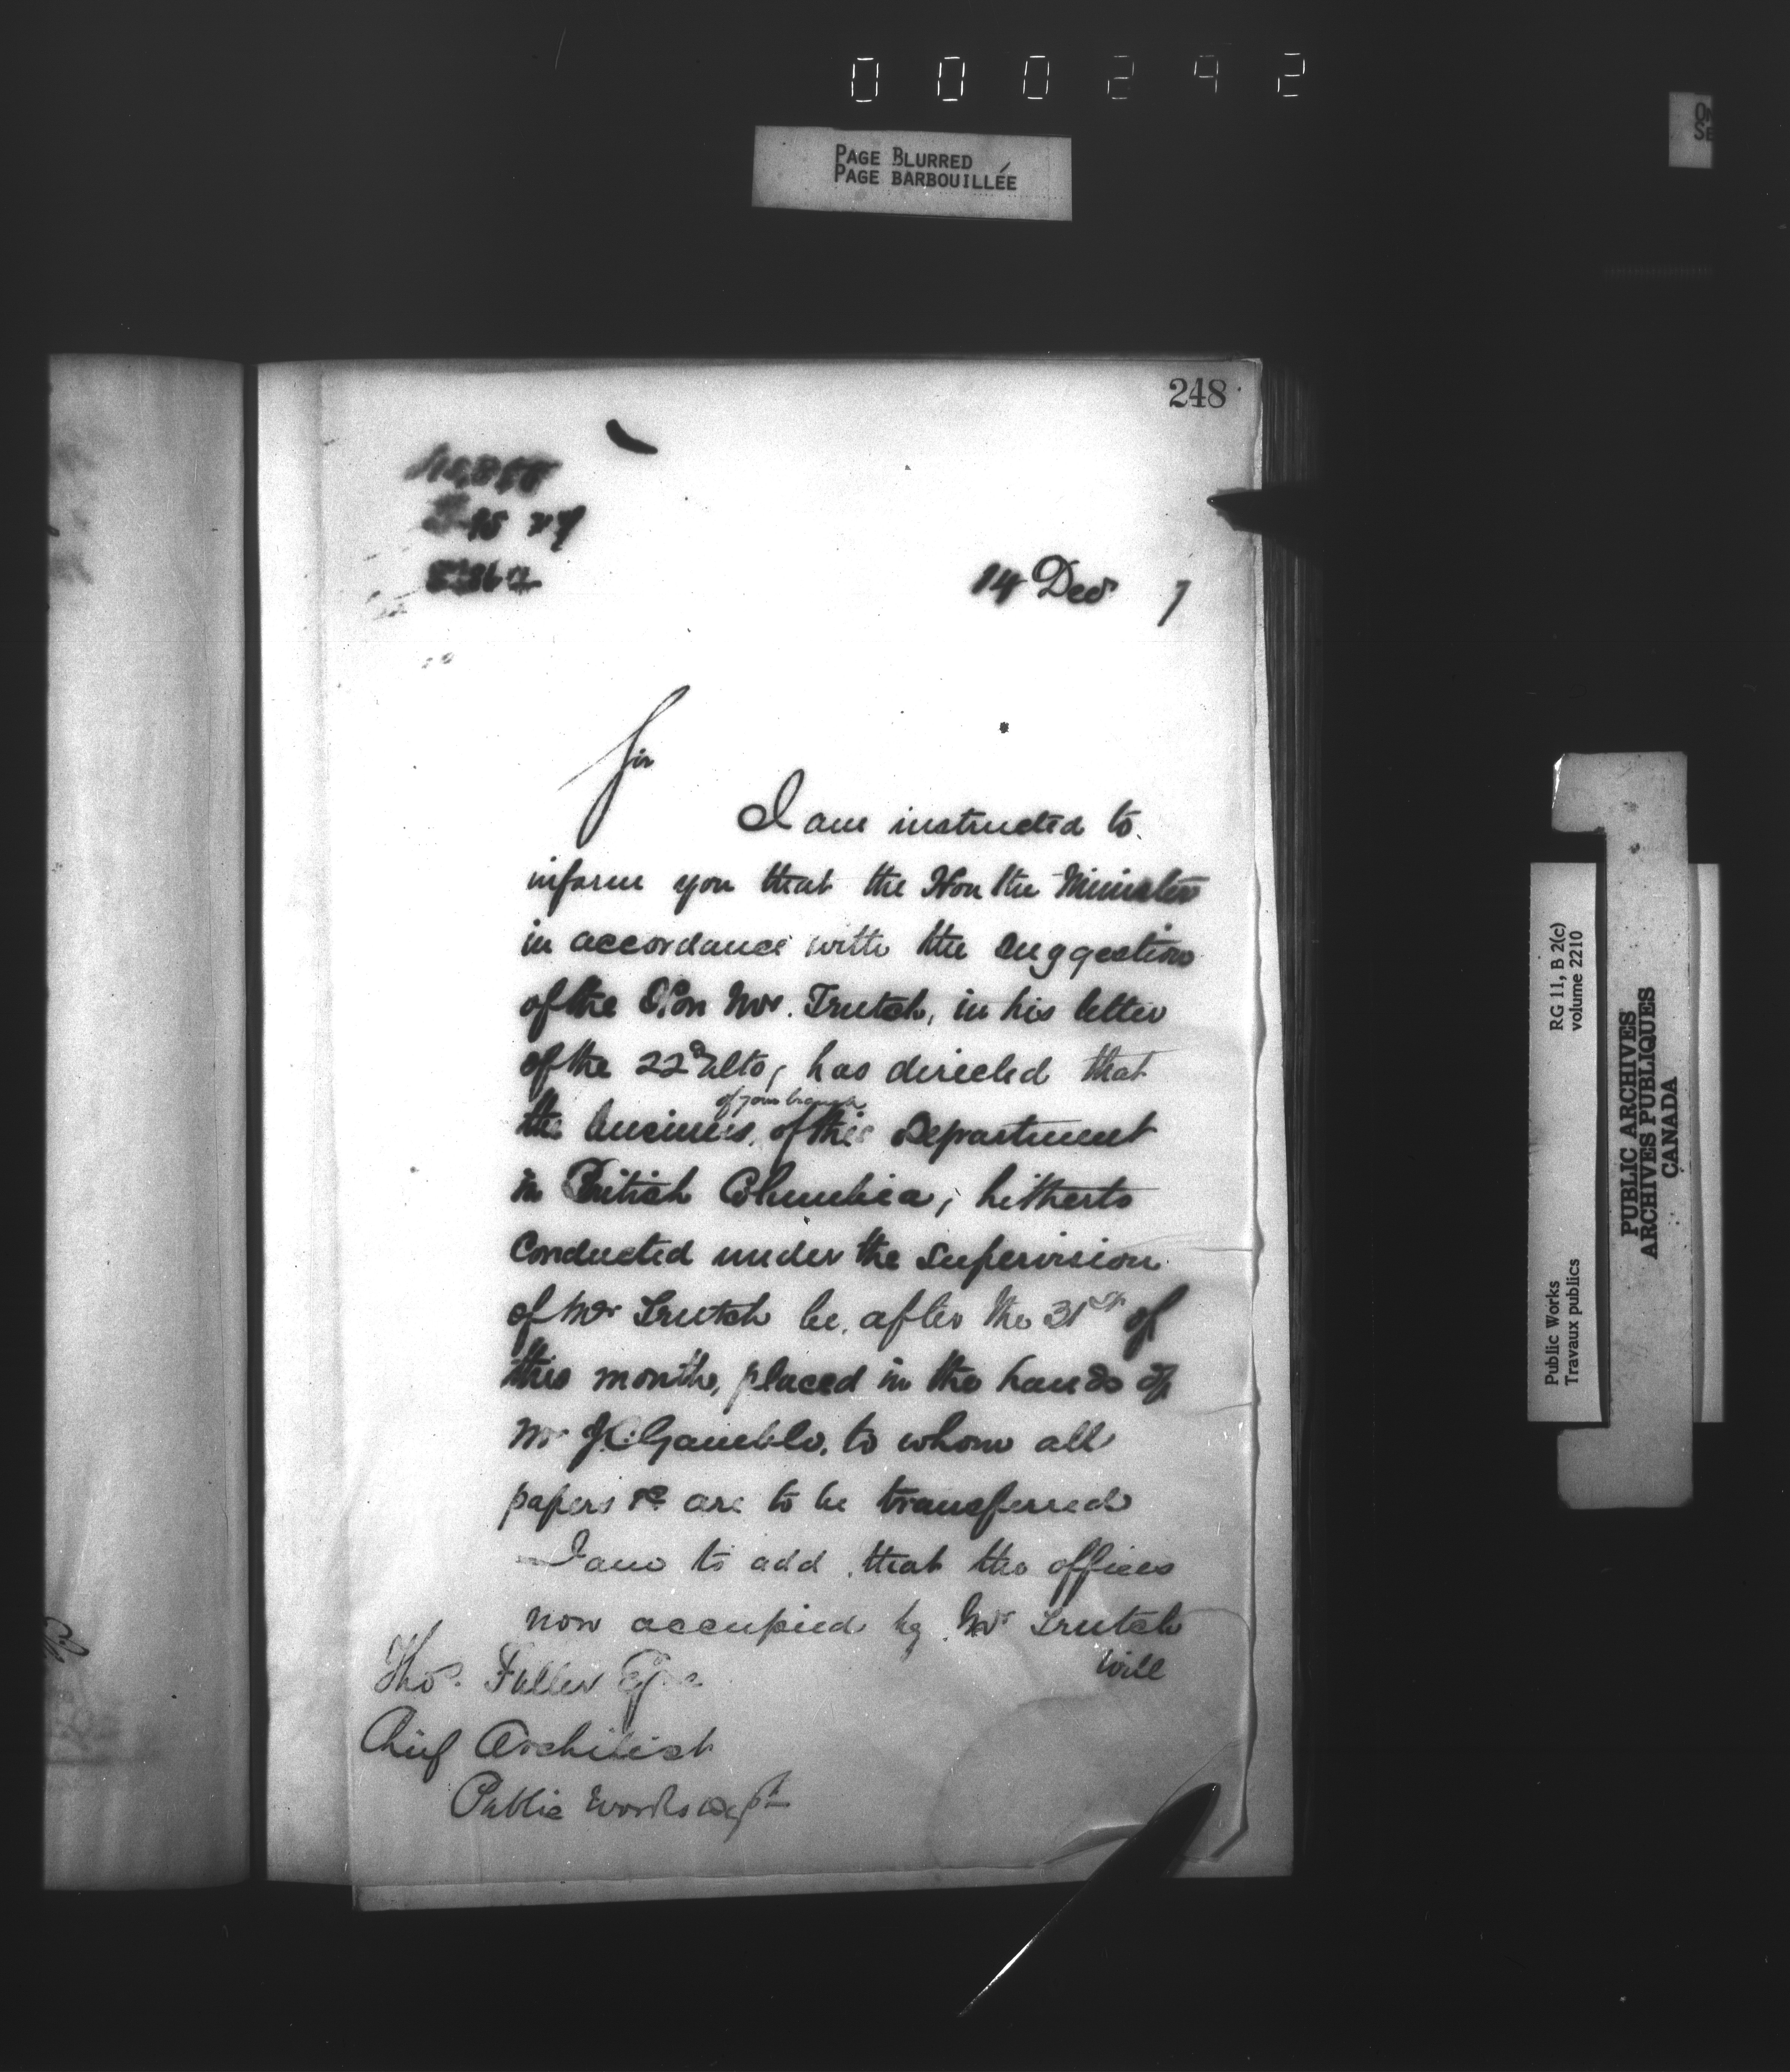 000242
PAGE BLURRED
PAGE BARBOUILLÉE
248
14 Decr 7
Sir
I am instructed to
inform you that the Hon the Minister
in accordance with the suggestion
of the Hon Mr. Trutch, in his letter
of the 22d ulto, has directed that
of your branch
the business, of this Department
in British Columbia, hitherto
conducted under the supervision
of Mr Trutch be, after the 31st of
this month, placed in the hands of
Mr J.C. Gamble, to whom all
papers &c are to be transferred
I am to add that the offices
now occupied by Mr Trutch
will
Thos. Fuller Esqre
Chief Architect
Public Works Dept
RG 11, B 2(c)
volume 2210
Public Works
Travaux publics
PUBLIC ARCHIVES
ARCHIVES PUBLIQUES
CANADA